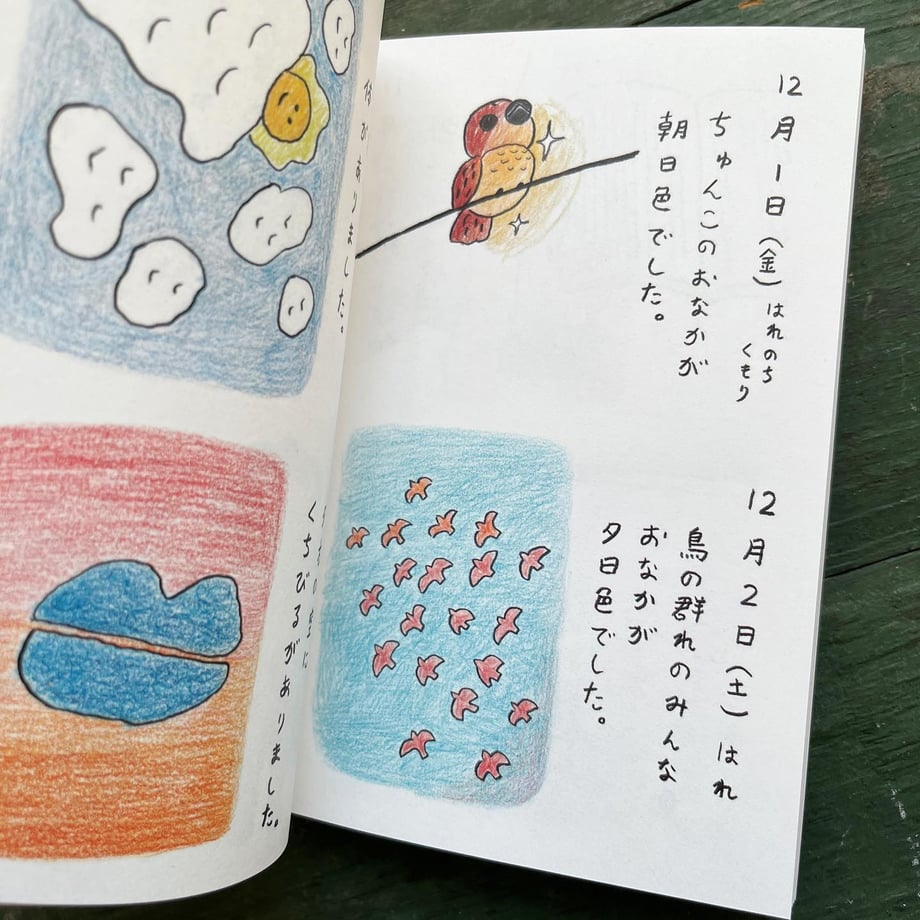 12月1日(金)はれのち
くもり
ちゅんこのおなかが
朝日色でした。
12月2日(土)はれ
鳥の群れのみんな
おなかが
夕日色でした。
がありました。
の空に
くちびるがありました。